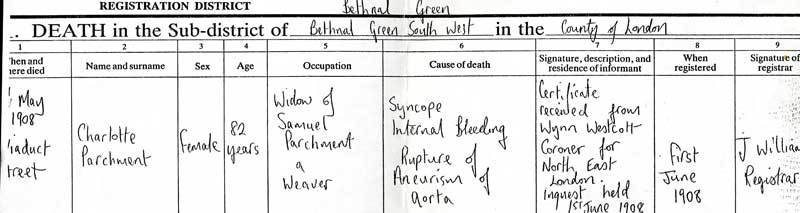 REGISTRATION DISTRICT Bethnal Green
DEATH in the Sub-district of Bethnal Green South West in the County of London
1 2 3 4 5 6 7 8 9
hen and
here died
Name and surname
Sex
Age
Occupation
Cause of death
Signature, description, and
residence of informant
When
registered
Signature of
registrar
May
1908
iaduct
treet
Charlotte
Parchment
Female
82
years
Widow of
Samuel
Parchment
a
Weaver
Syncope
Internal Bleeding
Rupture of
Aneurism of
aorta
Certificate
received from
Wynn Westcott
Coroner for
North East
London.
Inquest held
1st June 1908
First
June
1908
J William
Registrar